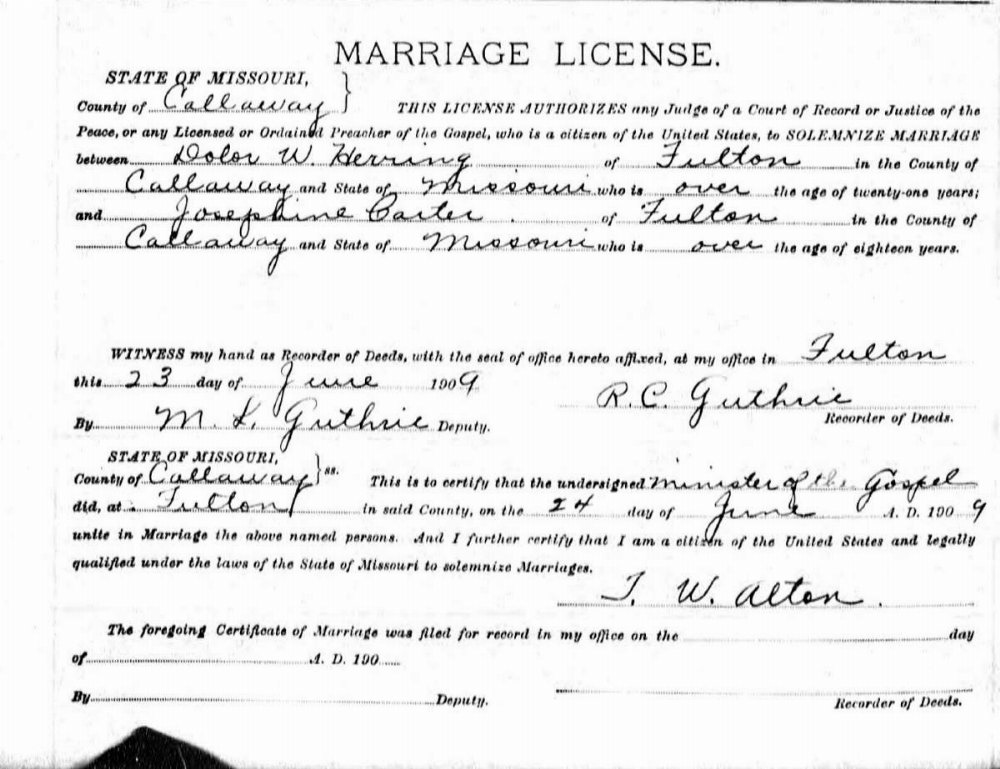 MARRIAGE LICENSE.
STATE OF MISSOURI,
County of Callaway } THIS LICENSE AUTHORIZES any Judge of a Court of Record or Justice of the
Peace, or any Licensed or Ordained Preacher of the Gospel, who is a citizen of the United States, to SOLEMNIZE MARRIAGE
between Dolor W. Herring of Fulton in the County of
Callaway and State of Missouri who is over the age of twenty-one years;
and Josephine Carter of Fulton in the County of
Callaway and State of Missouri who is over the age of eighteen years.
WITNESS my hand as Recorder of Deeds, with the seal of office hereto affixed, at my office in Fulton
this 23 day of June 1909 R. C. Guthrie
By M. L. Guthrie Deputy. Recorder of Deeds.
STATE OF MISSOURI,
County of Callaway } ss. This is to certify that the undersigned minister of the Gospel
did, at Fulton in said County, on the 24 day of June A. D. 1909
unite in Marriage the above named persons. And I further certify that I am a citizen of the United States and legally
qualified under the laws of the State of Missouri to solemnize Marriages.
T. W. Alton.
The foregoing Certificate of Marriage was filed for record in my office on the day
of A. D. 190
By Deputy. Recorder of Deeds.